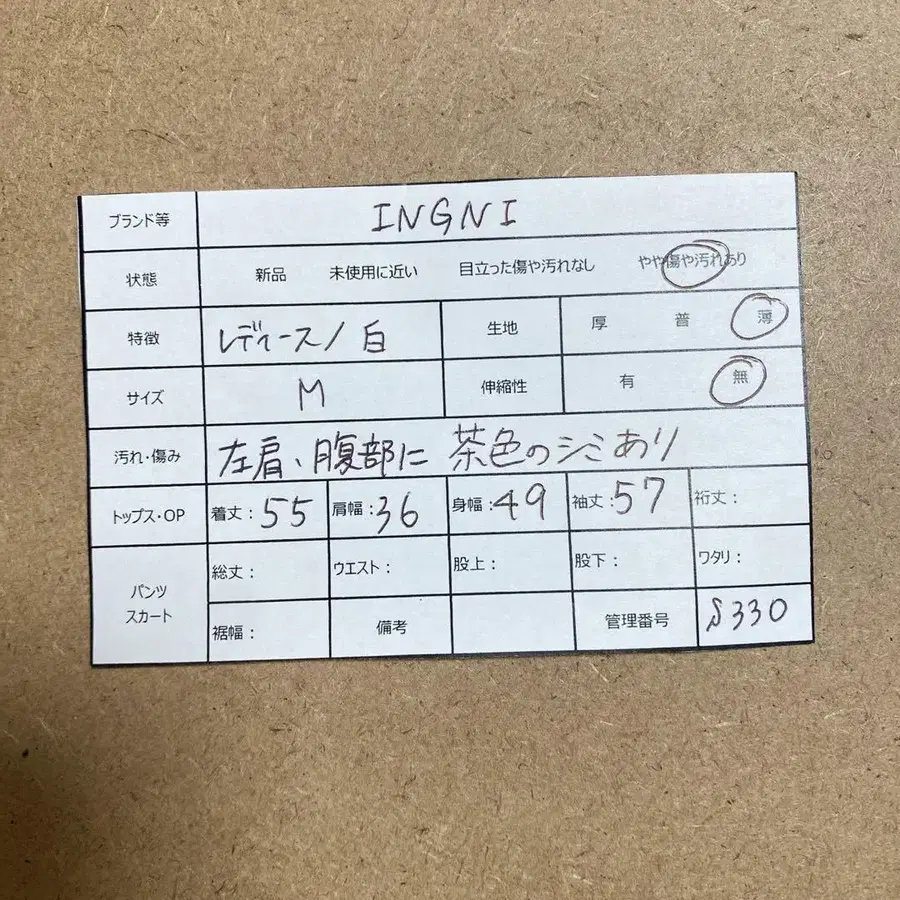 ブランド等 INGNI
状態 新品 未使用に近い 目立った傷や汚れなし やや傷や汚れあり
特徴 レディース/白 生地 厚 普 薄
サイズ M 伸縮性 有 無
汚れ・傷み 左肩、腹部に茶色のシミあり
トップス・OP 着丈:55 肩幅:36 身幅:49 袖丈:57 裄丈:
パンツ
スカート
総丈: ウエスト: 股上: 股下: ワタリ:
裾幅: 備考 管理番号 S330